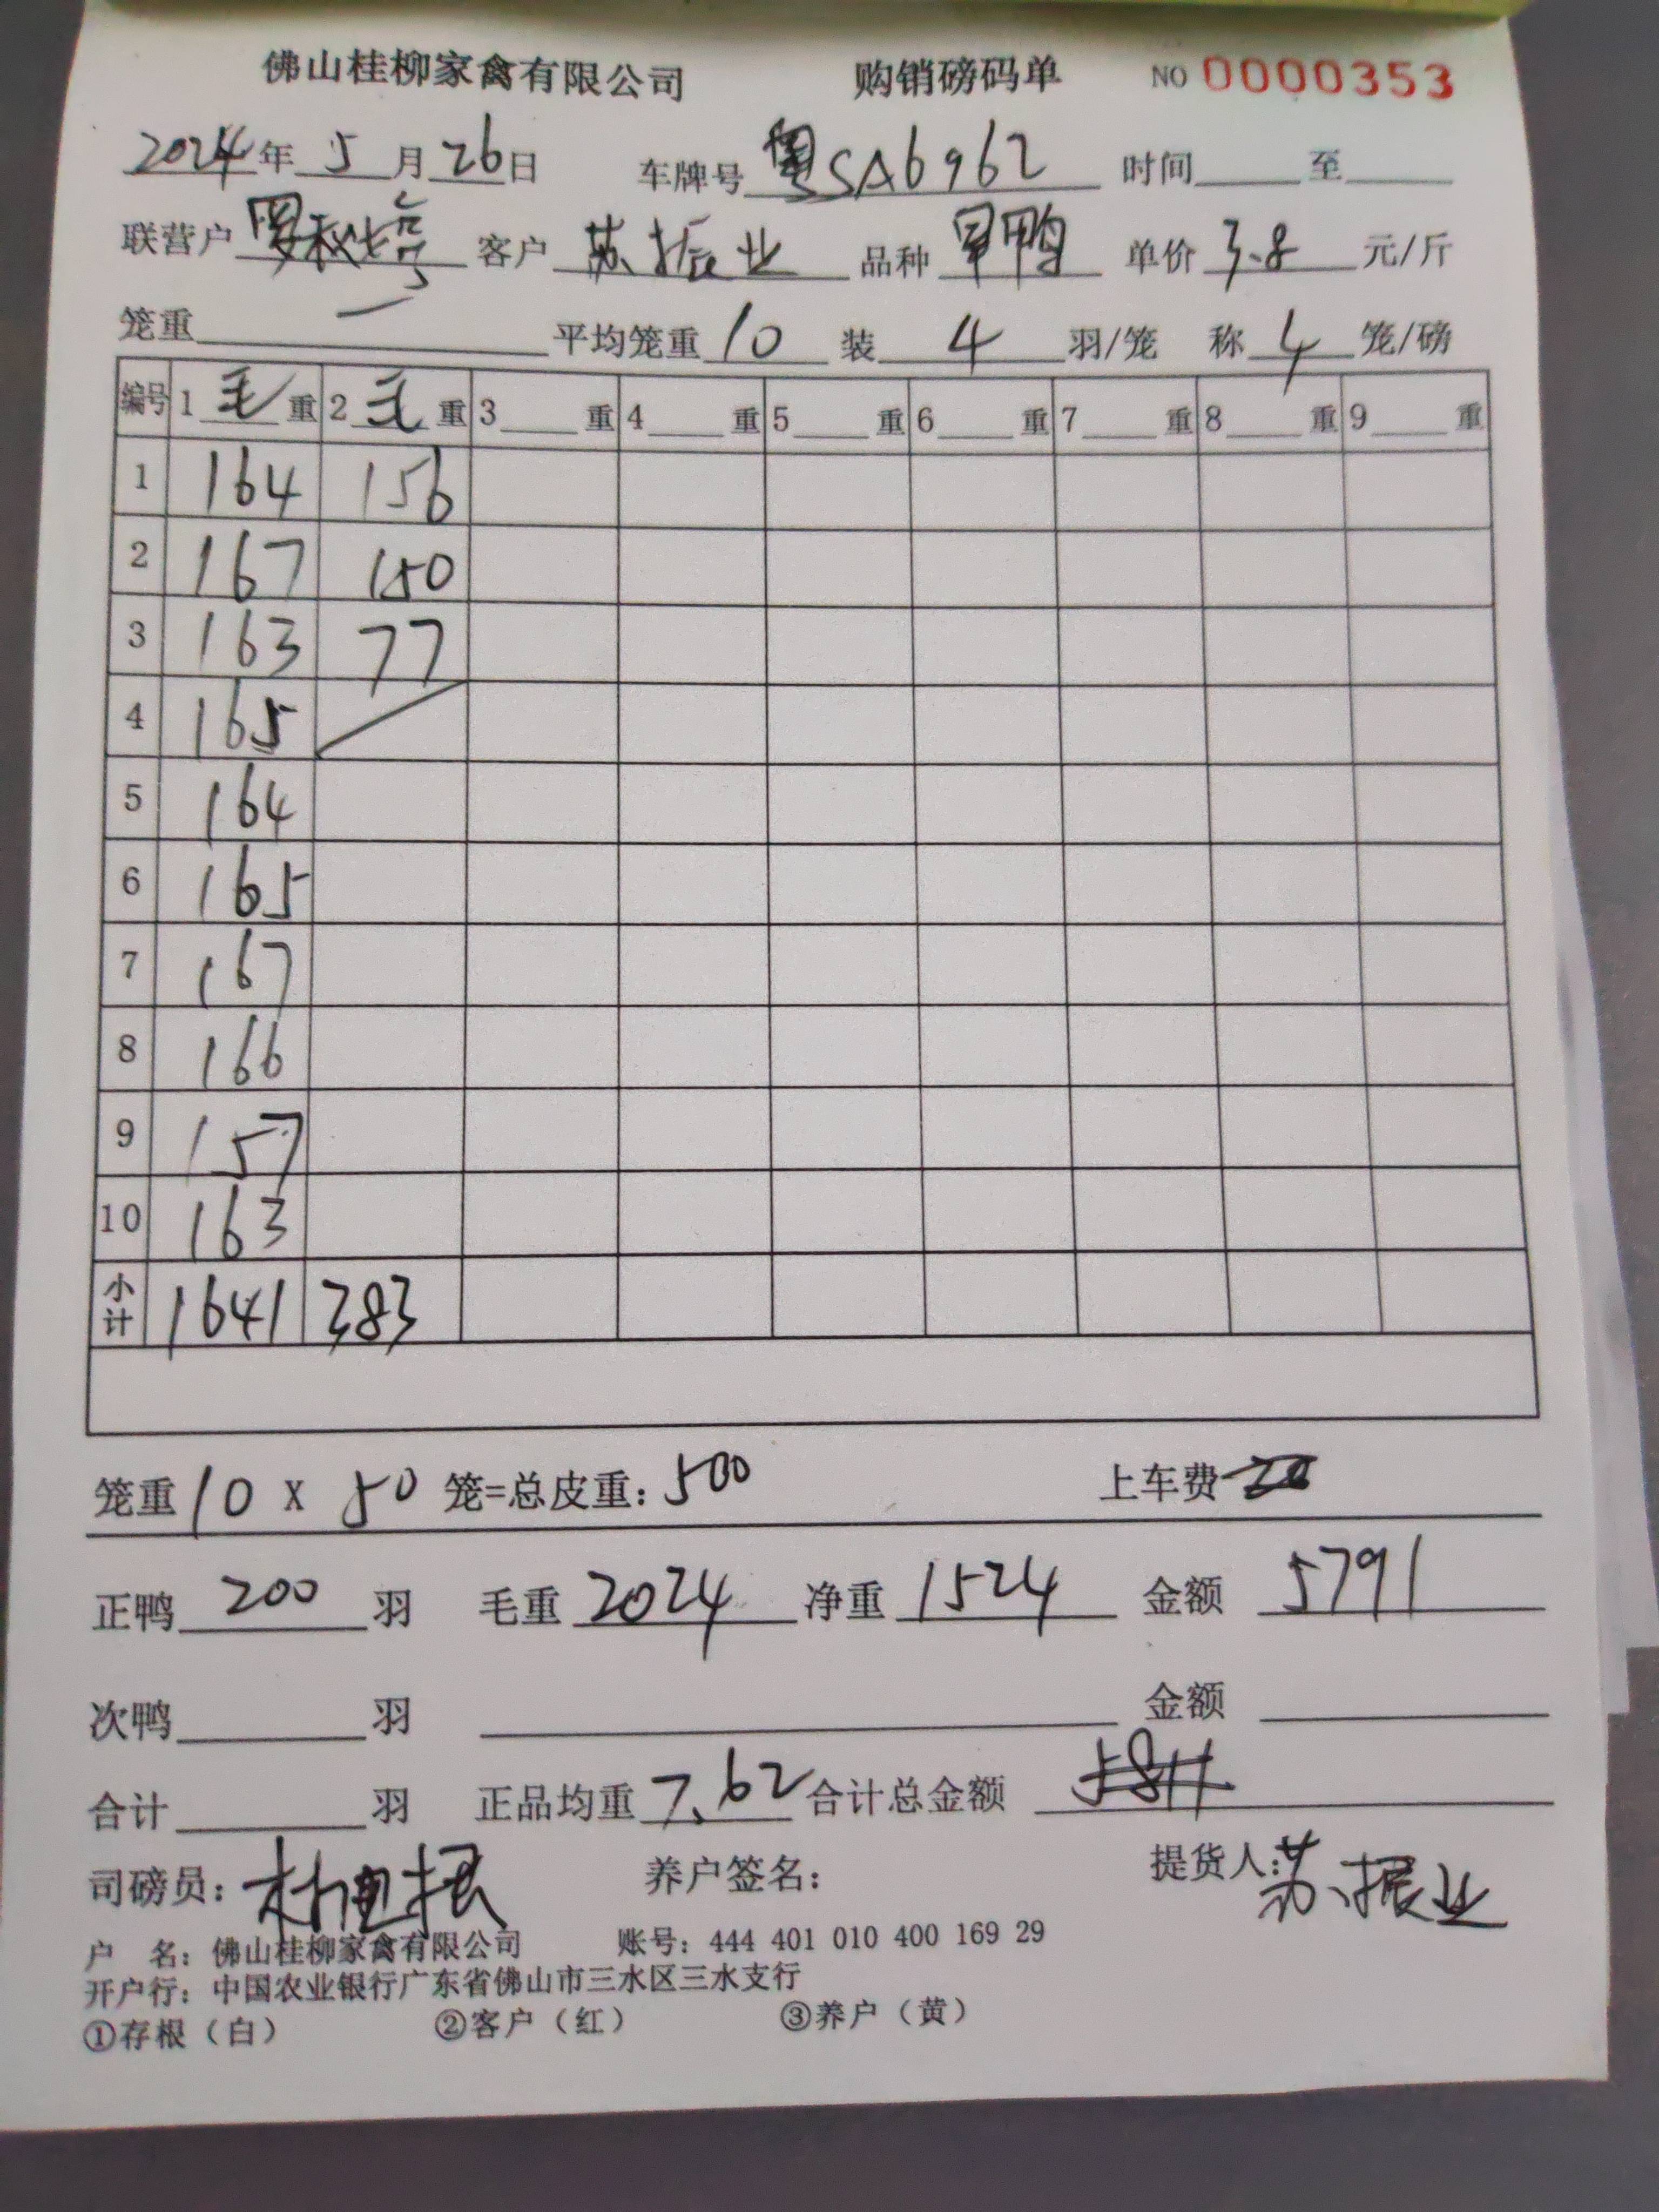 佛山桂柳家禽有限公司 购销磅码单 NO 0000353
2024年 5 月 26日 车牌号 粤SA6962 时间 至
联营户 罗秋婷 客户 苏振业 品种 旱鸭 单价 3.8 元/斤
笼重 一 平均笼重 10 装 4 羽/笼 称 4 笼/磅
编号 1 毛 重 2 毛 重 3 重 4 重 5 重 6 重 7 重 8 重 9 重
1 164 156
2 167 150
3 163 77
4 165
5 164
6 165
7 167
8 166
9 157
10 163
小计 1641 383
笼重 10 X 50 笼=总皮重: 500 上车费 20
正鸭 200 羽 毛重 2024 净重 1524 金额 5791
次鸭 羽 金额
合计 羽 正品均重 7.62 合计总金额 5811
司磅员: 养户签名: 提货人: 苏振业
户 名: 佛山桂柳家禽有限公司 账号: 444 401 010 400 169 29
开户行: 中国农业银行广东省佛山市三水区三水支行
①存根（白） ②客户（红） ③养户（黄）